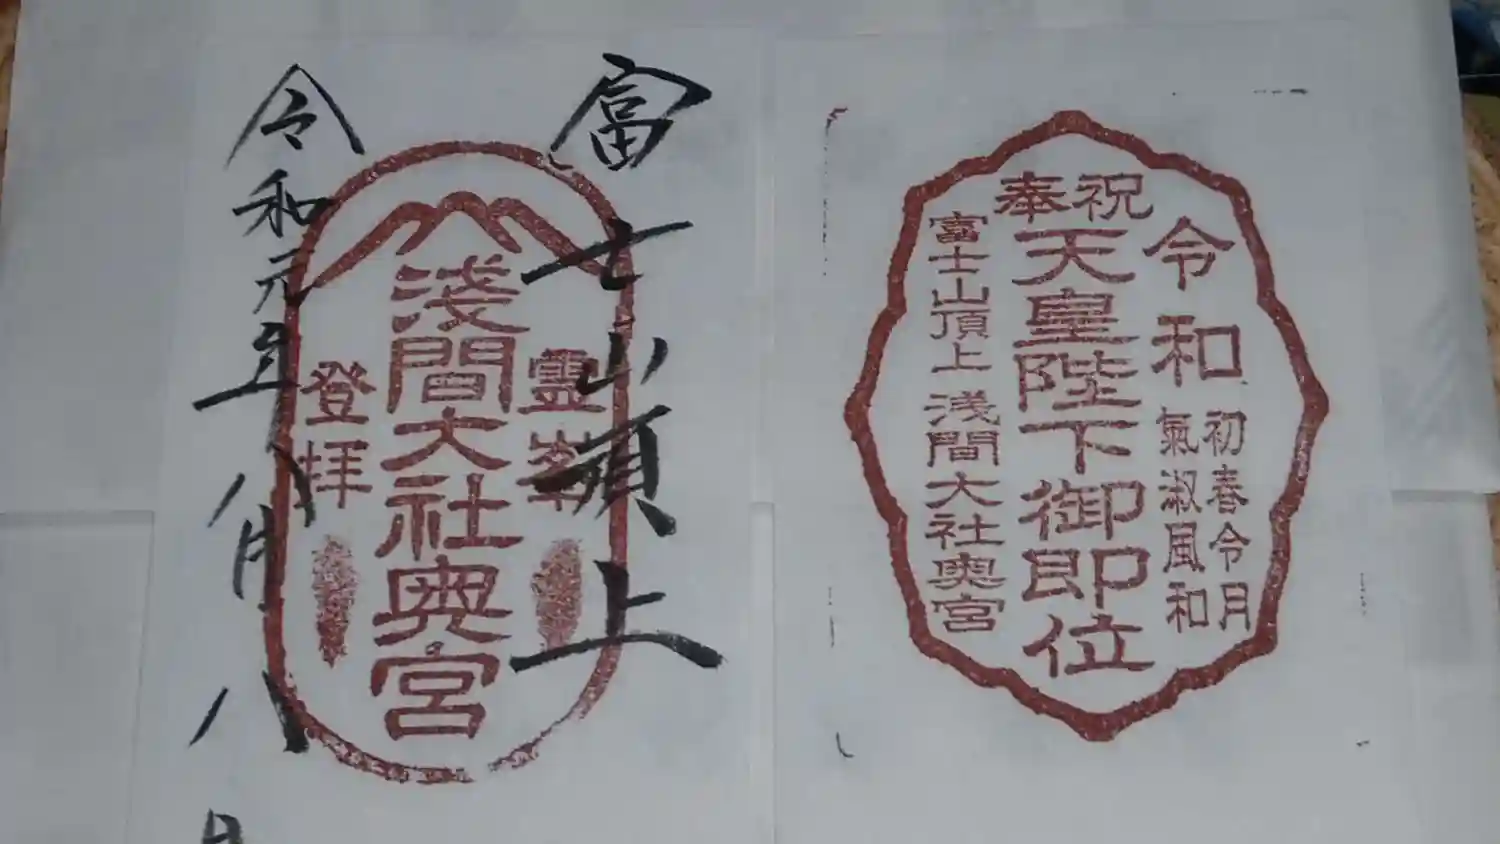 富士山頂上
靈峯
淺間大社奥宮
登拝
令和元年八月八日
奉祝
令和
初春令月
氣淑風和
天皇陛下御即位
富士山頂上 浅間大社奥宮